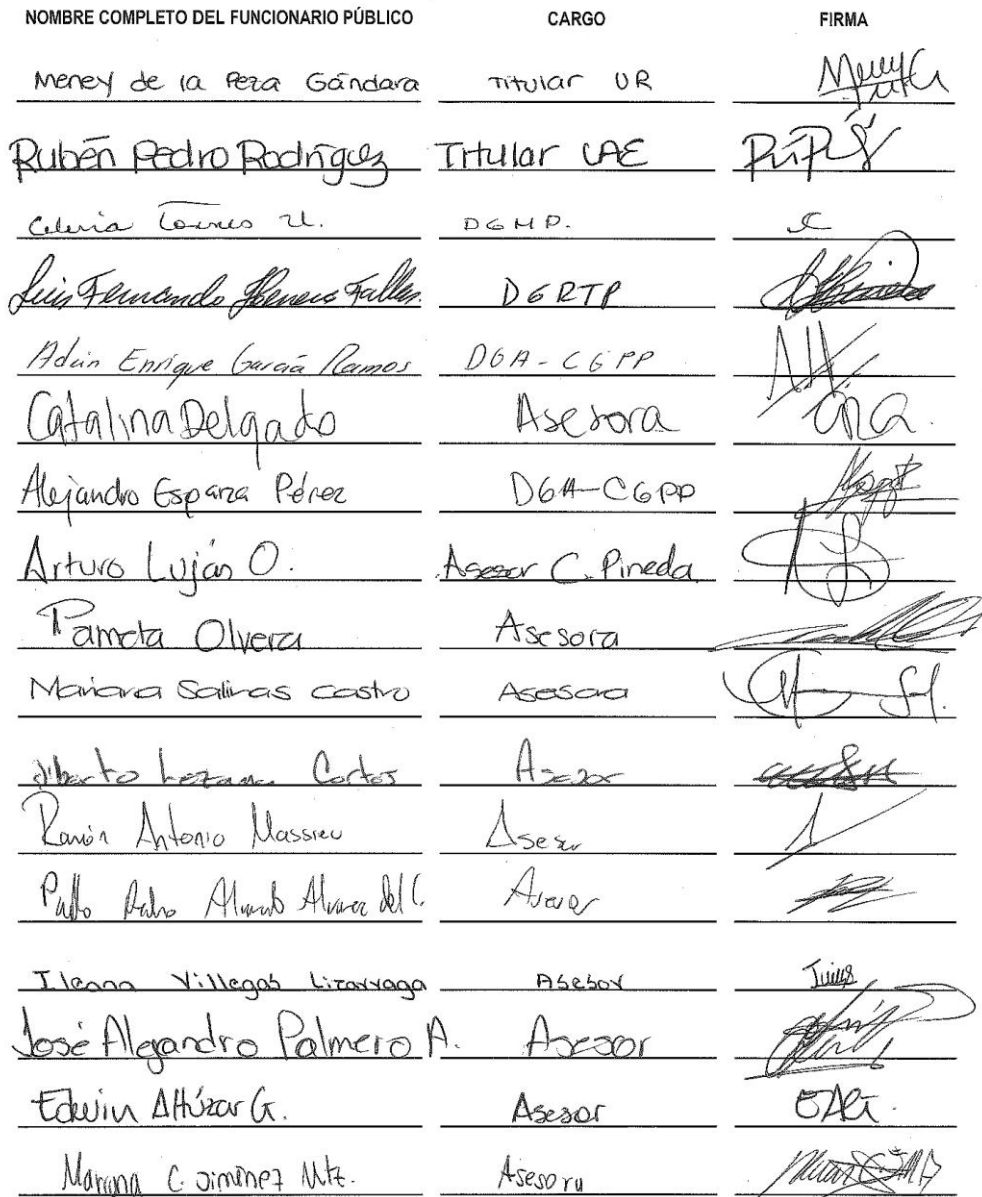 NOMBRE COMPLETO DEL FUNCIONARIO PÚBLICO CARGO FIRMA
Meney de la Peza Gándara Titular UR
Rubén Pedro Rodríguez Titular UAE
Torres U. DGMP.
Luis Fernando DGRTP
Adán Enrique García Ramos DGA-CGPP
Catalina Delgado Asesora
Alejandro Esparza Pérez DGA-CGPP
Arturo Luján O. Asesor C. Pineda
Pamela Olvera Asesora
Mariana Salinas Castro Asesora
Lozano Cortes Asesor
Ramón Antonio Massieu Asesor
Pablo Pedro Álvarez del C. Asesor
Ileana Villegas Lizarraga Asesor
José Alejandro Palmero A. Asesor
Edwin Altúzar G. Asesor EAG.
Mariana C. Jiménez Mtz. Asesora